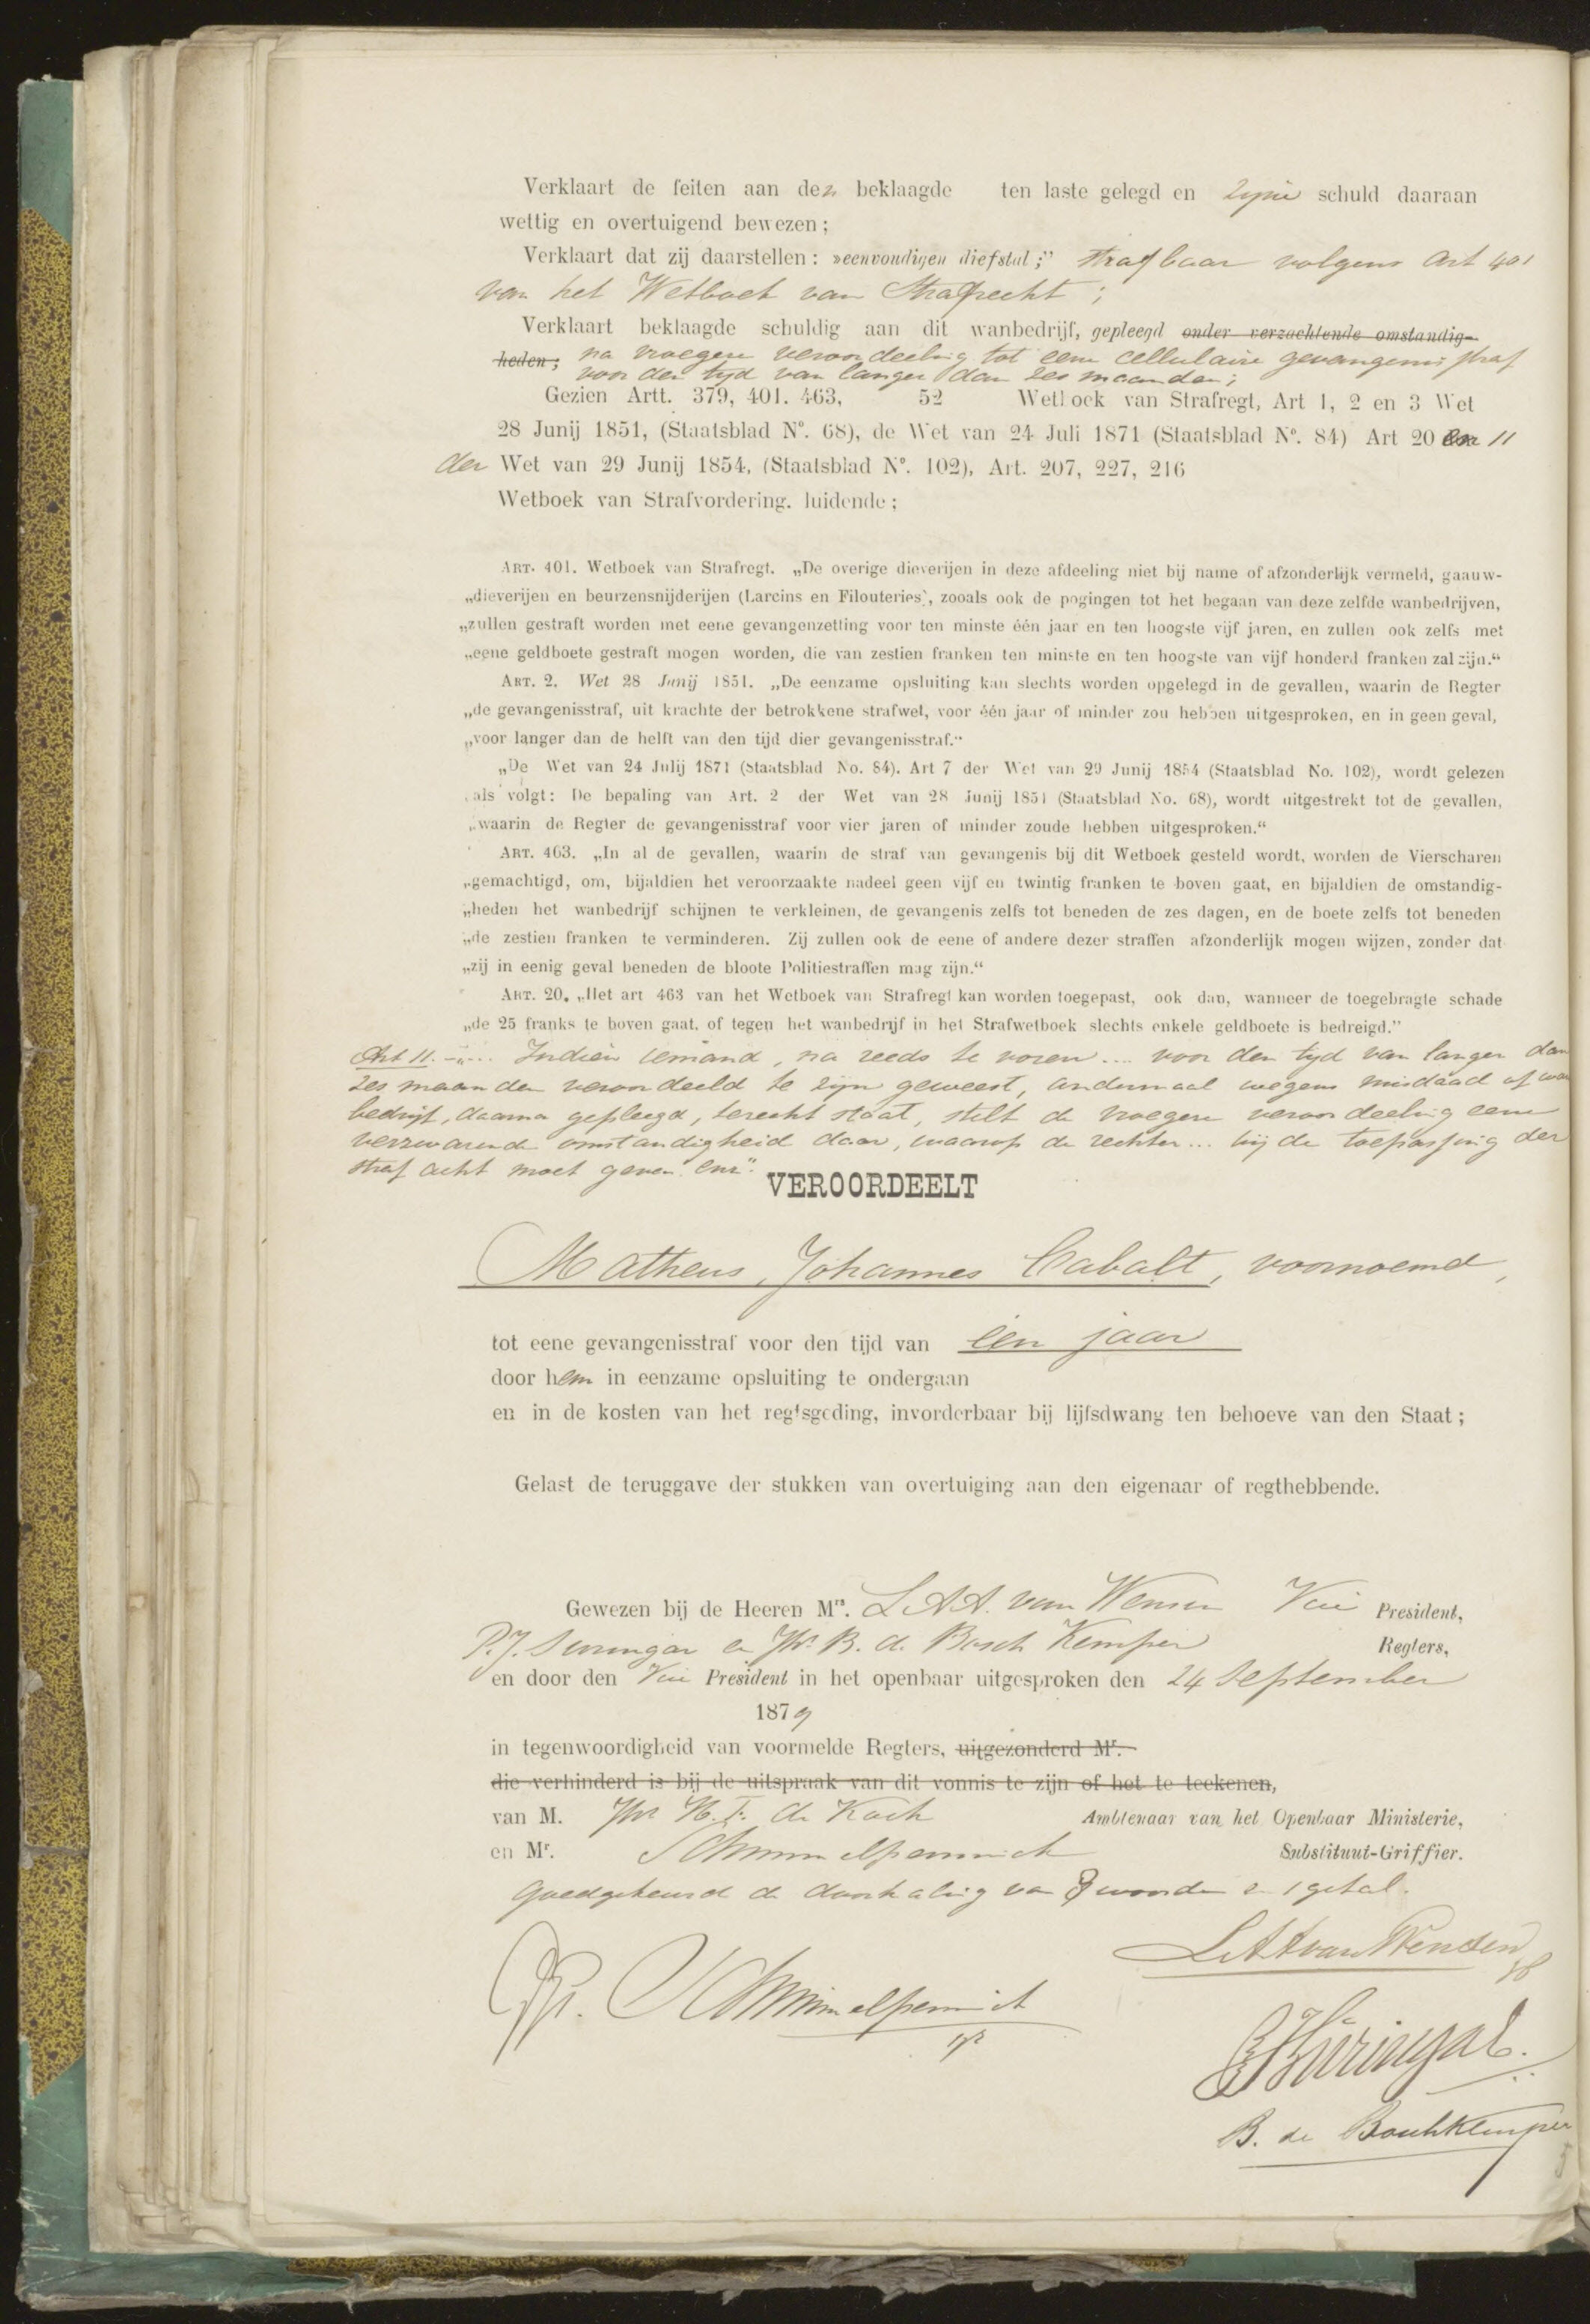 Verklaart de feiten aan den beklaagde ten laste gelegd en zijne schuld daaraan
wettig en overtuigend bewezen;
Verklaart dat zij daarstellen: »eenvoudigen diefstal;" strafbaar volgens Art 401
van het Wetboek van Strafrecht;
Verklaart beklaagde schuldig aan dit wanbedrijf, gepleegd onder verzachtende omstandig-
heden; na vroegere veroordeeling tot eene cellulaire gevangenisstraf
voor den tijd van langer dan zes maanden;
Gezien Artt. 379, 401. 463, 52 Wetboek van Strafregt, Art 1, 2 en 3 Wet
28 Junij 1851, (Staatsblad N°. 68), de Wet van 24 Juli 1871 (Staatsblad N°. 84) Art 20 en 11
der Wet van 29 Junij 1854, (Staatsblad N°. 102), Art. 207, 227, 216
Wetboek van Strafvordering. luidende;
ART. 401. Wetboek van Strafregt. „De overige dieverijen in deze afdeeling niet bij name of afzonderlijk vermeld, gaauw-
„dieverijen en beurzensnijderijen (Larcins en Filouteries), zooals ook de pogingen tot het begaan van deze zelfde wanbedrijven,
„zullen gestraft worden met eene gevangenzetting voor ten minste één jaar en ten hoogste vijf jaren, en zullen ook zelfs met
„eene geldboete gestraft mogen worden, die van zestien franken ten minste en ten hoogste van vijf honderd franken zal zijn.“
ART. 2. Wet 28 Junij 1851. „De eenzame opsluiting kan slechts worden opgelegd in de gevallen, waarin de Regter
„de gevangenisstraf, uit krachte der betrokkene strafwet, voor één jaar of minder zou hebben uitgesproken, en in geen geval,
„voor langer dan de helft van den tijd dier gevangenisstraf.“
„De Wet van 24 Julij 1871 (Staatsblad No. 84). Art 7 der Wet van 29 Junij 1854 (Staatsblad No. 102), wordt gelezen
„als volgt: De bepaling van Art. 2 der Wet van 28 Junij 1851 (Staatsblad No. 68), wordt uitgestrekt tot de gevallen,
„waarin de Regter de gevangenisstraf voor vier jaren of minder zoude hebben uitgesproken.“
ART. 463. „In al de gevallen, waarin de straf van gevangenis bij dit Wetboek gesteld wordt, worden de Vierscharen
„gemachtigd, om, bijaldien het veroorzaakte nadeel geen vijf en twintig franken te boven gaat, en bijaldien de omstandig-
„heden het wanbedrijf schijnen te verkleinen, de gevangenis zelfs tot beneden de zes dagen, en de boete zelfs tot beneden
„de zestien franken te verminderen. Zij zullen ook de eene of andere dezer straffen afzonderlijk mogen wijzen, zonder dat
„zij in eenig geval beneden de bloote Politiestraffen mag zijn.“
ART. 20. „Het art 463 van het Wetboek van Strafregt kan worden toegepast, ook dan, wanneer de toegebragte schade
„de 25 franks te boven gaat, of tegen het wanbedrijf in het Strafwetboek slechts enkele geldboete is bedreigd.”
Art 11. -„... Indien iemand, na reeds te voren ... voor den tijd van langer dan
zes maanden veroordeeld te zijn geweest, andermaal wegens misdaad of wan
bedrijf, daarna gepleegd, terecht staat, stelt de vroegere veroordeeling eene
verzwarende omstandigheid daar, waarop de rechter ... bij de toepassing der
straf acht moet geven enz".
VEROORDEELT
Matheus, Johannes Cabalt, voornoemd,
tot eene gevangenisstraf voor den tijd van één jaar
door hem in eenzame opsluiting te ondergaan
en in de kosten van het regtsgeding, invorderbaar bij lijfsdwang ten behoeve van den Staat;
Gelast de teruggave der stukken van overtuiging aan den eigenaar of regthebbende.
Gewezen bij de Heeren Mrs. L.A.A. van Wensen Vice President,
P.J. Suringar en Jhr. B. de Bosch Kemper Regters,
en door den Vice President in het openbaar uitgesproken den 24 September
1879
in tegenwoordigheid van voormelde Regters, uitgezonderd Mr.
die verhinderd is bij de uitspraak van dit vonnis te zijn of het te teekenen,
van M. Jhr de Kock Ambtenaar van het Openbaar Ministerie,
en Mr. Schimmelpenninck Substituut-Griffier.
Goedgekeurd de doorhaling van 8 woorden en 1 getal.
LAA van Wensen
Schimmelpenninck
Suringar.
B. de Bosch Kemper